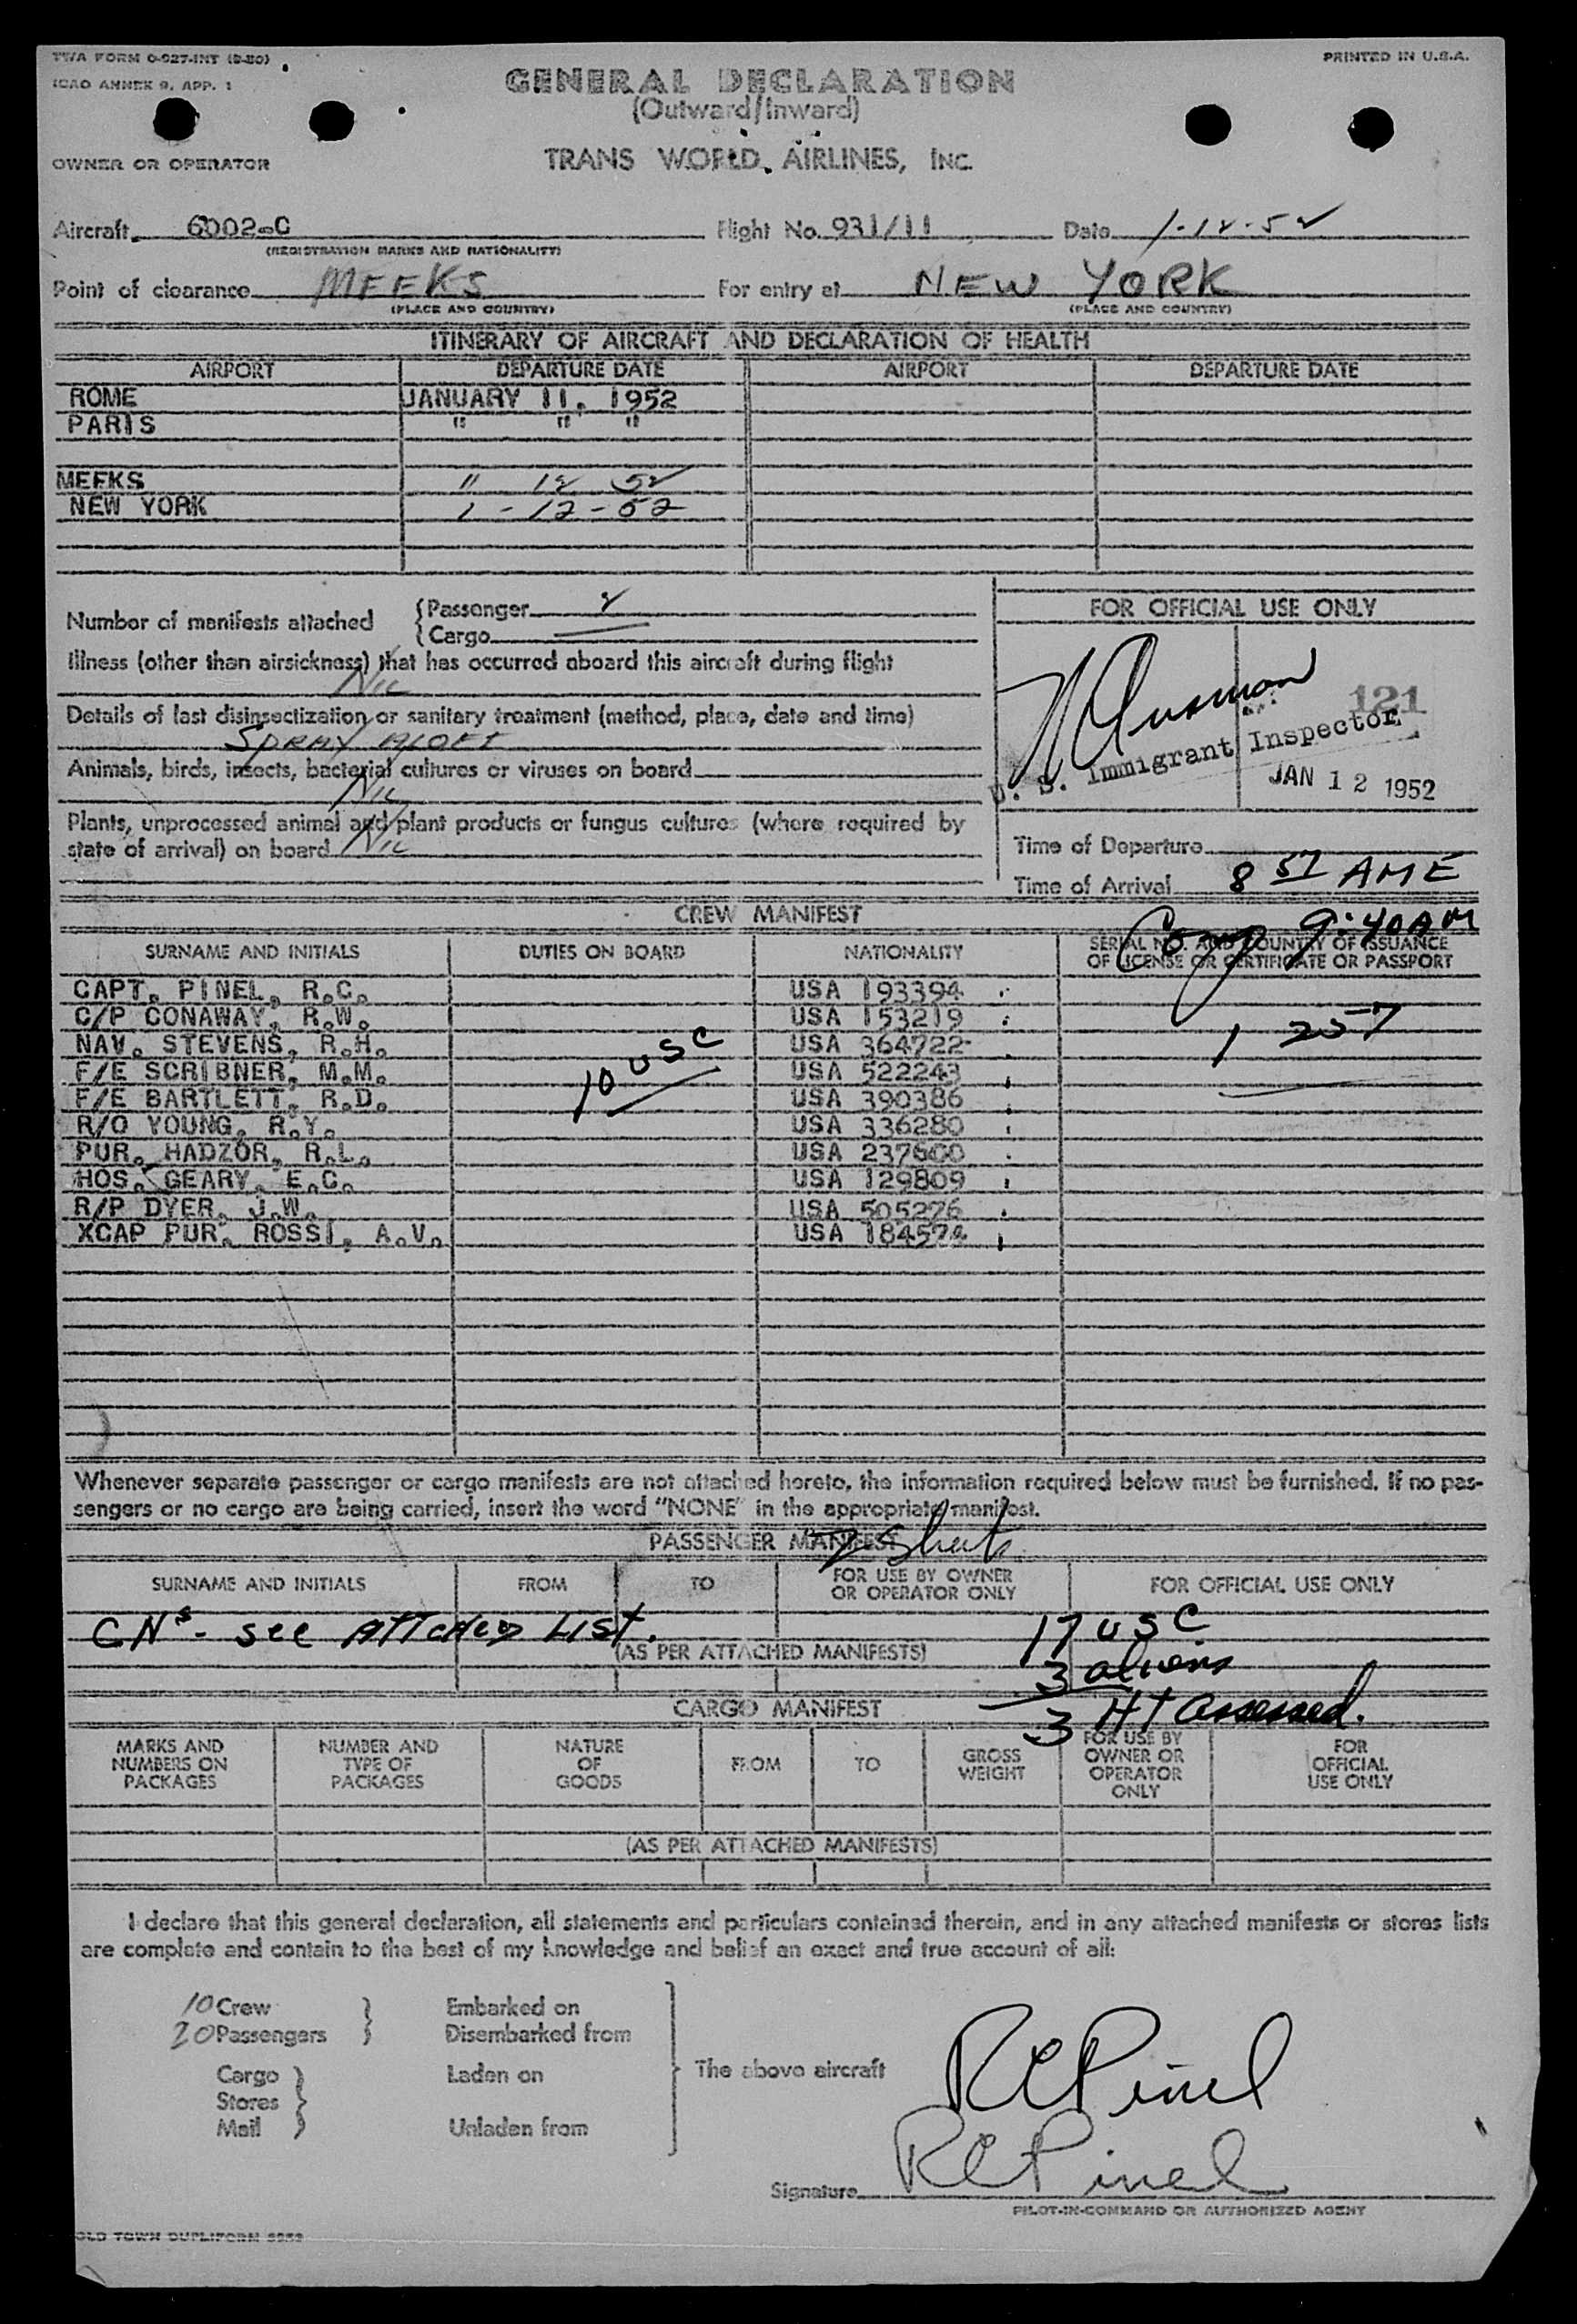 TWA FORM O-927-INT (9-50)
PRINTED IN U.S.A.
ICAO ANNEX 9, APP. 1
GENERAL DECLARATION
(Outward/Inward)
OWNER OR OPERATOR
TRANS WORLD AIRLINES, INC.
Aircraft 6002-C Flight No. 931/11 Date 1-12-52
(REGISTRATION MARKS AND NATIONALITY)
Point of clearance MEEKS For entry at NEW YORK
(PLACE AND COUNTRY) (PLACE AND COUNTRY)
ITINERARY OF AIRCRAFT AND DECLARATION OF HEALTH
AIRPORT DEPARTURE DATE AIRPORT DEPARTURE DATE
ROME JANUARY 11, 1952
PARIS " " "
MEEKS " 12 52
NEW YORK 1-12-52
Number of manifests attached { Passenger 2
{ Cargo —
FOR OFFICIAL USE ONLY
Illness (other than airsickness) that has occurred aboard this aircraft during flight
Nil
Details of last disinsectization or sanitary treatment (method, place, date and time)
SPRAY ALOFT
121
U. S. Immigrant Inspector
JAN 12 1952
Animals, birds, insects, bacterial cultures or viruses on board
Nil
Plants, unprocessed animal and plant products or fungus cultures (where required by
state of arrival) on board Nil
Time of Departure
Time of Arrival 8 57 AME
CREW MANIFEST
Comp 9:40AM
SURNAME AND INITIALS DUTIES ON BOARD NATIONALITY SERIAL NO. AND COUNTRY OF ISSUANCE
OF LICENSE OR CERTIFICATE OR PASSPORT
CAPT. PINEL, R.C. USA 193394
C/P CONAWAY, R.W. USA 153219
1 257
NAV. STEVENS, R.H. USA 364722
10 USC
F/E SCRIBNER, M.M. USA 522243
F/E BARTLETT, R.D. USA 390386
R/O YOUNG, R.Y. USA 336280
PUR. HADZOR, R.L. USA 237600
HOS. GEARY, E.C. USA 129809
R/P DYER, J.W. USA 505276
XCAP PUR. ROSSI, A.V. USA 184574
Whenever separate passenger or cargo manifests are not attached hereto, the information required below must be furnished. If no pas-
sengers or no cargo are being carried, insert the word "NONE" in the appropriate manifest.
PASSENGER MANIFEST 2 Sheets
SURNAME AND INITIALS FROM TO FOR USE BY OWNER
OR OPERATOR ONLY FOR OFFICIAL USE ONLY
CNs - see ATTACHED LIST. 17 USC
(AS PER ATTACHED MANIFESTS)
3 aliens
CARGO MANIFEST
3 HT assessed.
MARKS AND
NUMBERS ON
PACKAGES
NUMBER AND
TYPE OF
PACKAGES
NATURE
OF
GOODS
FROM TO GROSS
WEIGHT
FOR USE BY
OWNER OR
OPERATOR
ONLY
FOR
OFFICIAL
USE ONLY
(AS PER ATTACHED MANIFESTS)
I declare that this general declaration, all statements and particulars contained therein, and in any attached manifests or stores lists
are complete and contain to the best of my knowledge and belief an exact and true account of all:
10 Crew } Embarked on
20 Passengers } Disembarked from
Cargo } Laden on
The above aircraft
Stores }
Mail } Unladen from
RCPinel
RCPinel
Signature
PILOT-IN-COMMAND OR AUTHORIZED AGENT